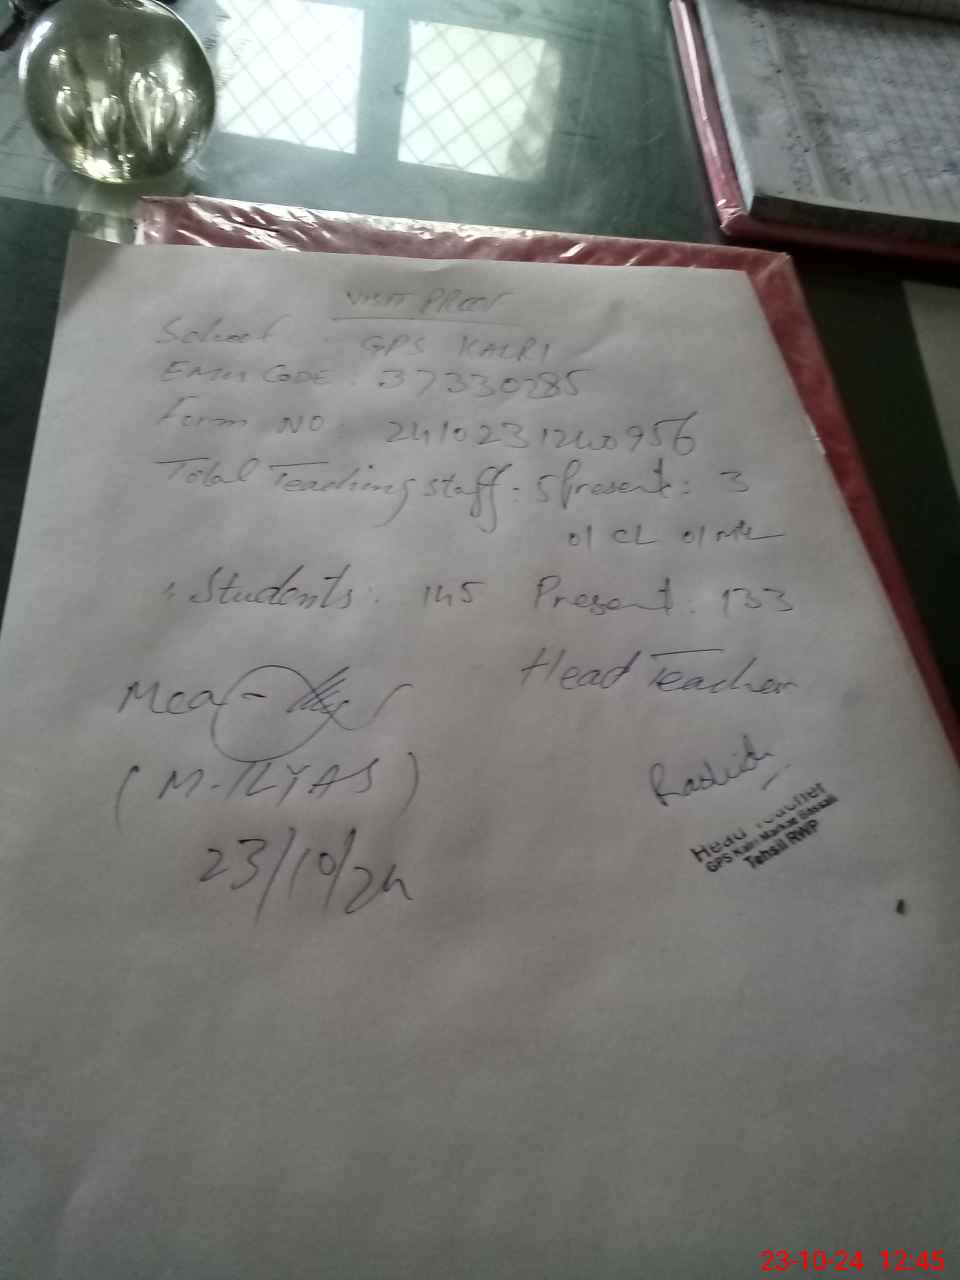 VISIT PROOF
School : GPS KALRI
EMIS CODE : 37330285
Form NO : 2410231240956
Total Teaching staff : 5 Present : 3
01 CL 01 ML
Students : 145 Present : 133
Mea
Head Teacher
(M. ILYAS)
Rashid
23/10/24
Head Teacher
GPS Kalri Markaz Bassali
Tehsil RWP
23-10-24 12:45